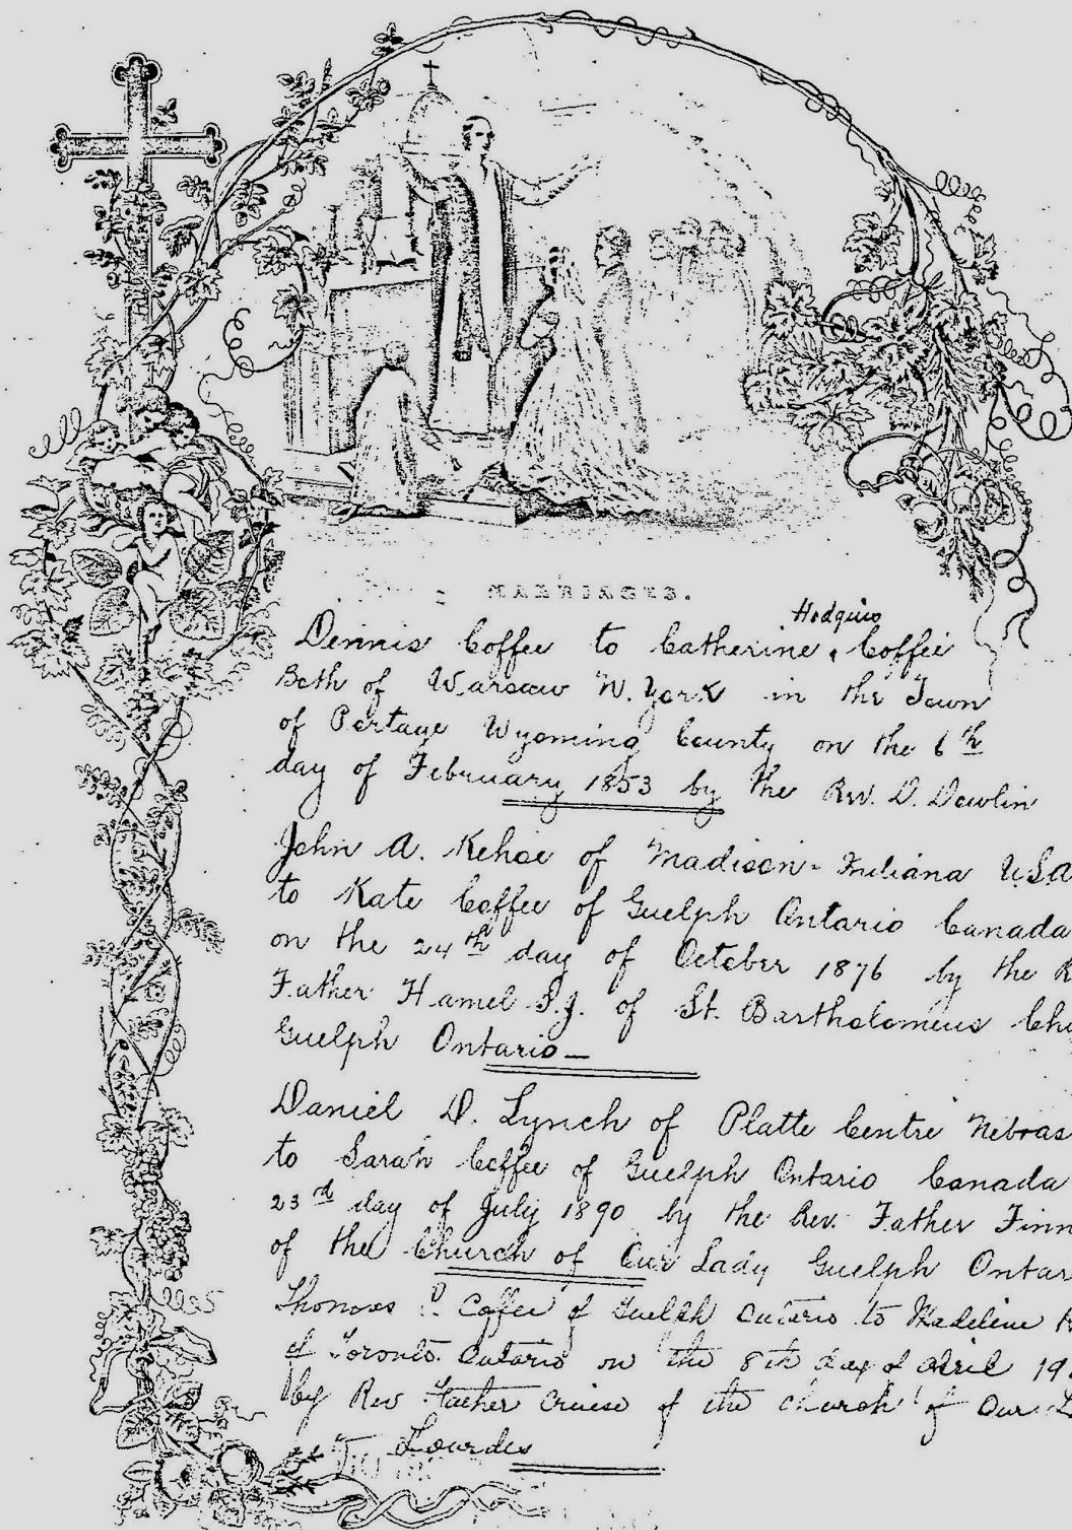 MARRIAGES.
Hodquis
Dennis Coffee to Catherine, Coffee
Both of Warsaw N. York in the Town
of Portage Wyoming County on the 6th
day of February 1853 by the Rev. D. Dowlin
John A. Kehoe of Madison - Indiana U.S.A
to Kate Coffee of Guelph Ontario Canada
on the 24th day of October 1876 by the R
Father Hamel S.J. of St. Bartholomeus Chu
Guelph Ontario —
Daniel D. Lynch of Platte Centre Nebras
to Sarah Coffee of Guelph Ontario Canada
23rd day of July 1890 by the Rev. Father Finn
of the Church of Our Lady Guelph Ontar
Thomas P. Coffee of Guelph Ontario to Madeline
of Toronto Ontario on the 8th day of April 19
by Rev Father Cruise of the church of Our L
Lourdes